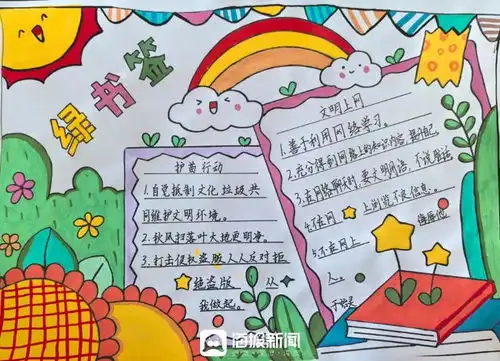 绿书签
护苗行动
1.自觉抵制文化垃圾共
同维护文明环境。
2.秋风扫落叶大地更明净。
3.打击侵权盗版人人反对拒
绝盗版 从
我做起。
文明上网
1.善于利用网络学习。
2.充分得利网络上的知识内容
3.在网络聊天时,要文明用语,不说
4.在网 上浏览不良信息。
5.不在网上
人。
海报新闻